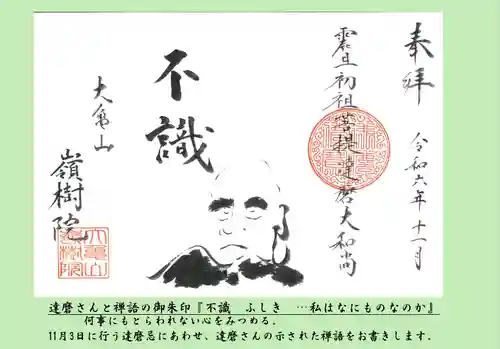 奉拝
令和六年十一月
震旦初祖菩提達磨大和尚
不識
大亀山
嶺樹院
達磨さんと禅語の御朱印『不識　ふしき　…私はなにものなのか』
何事にもとらわれない心をみつめる。
11月3日に行う達磨忌にあわせ、達磨さんの示された禅語をお書きします。